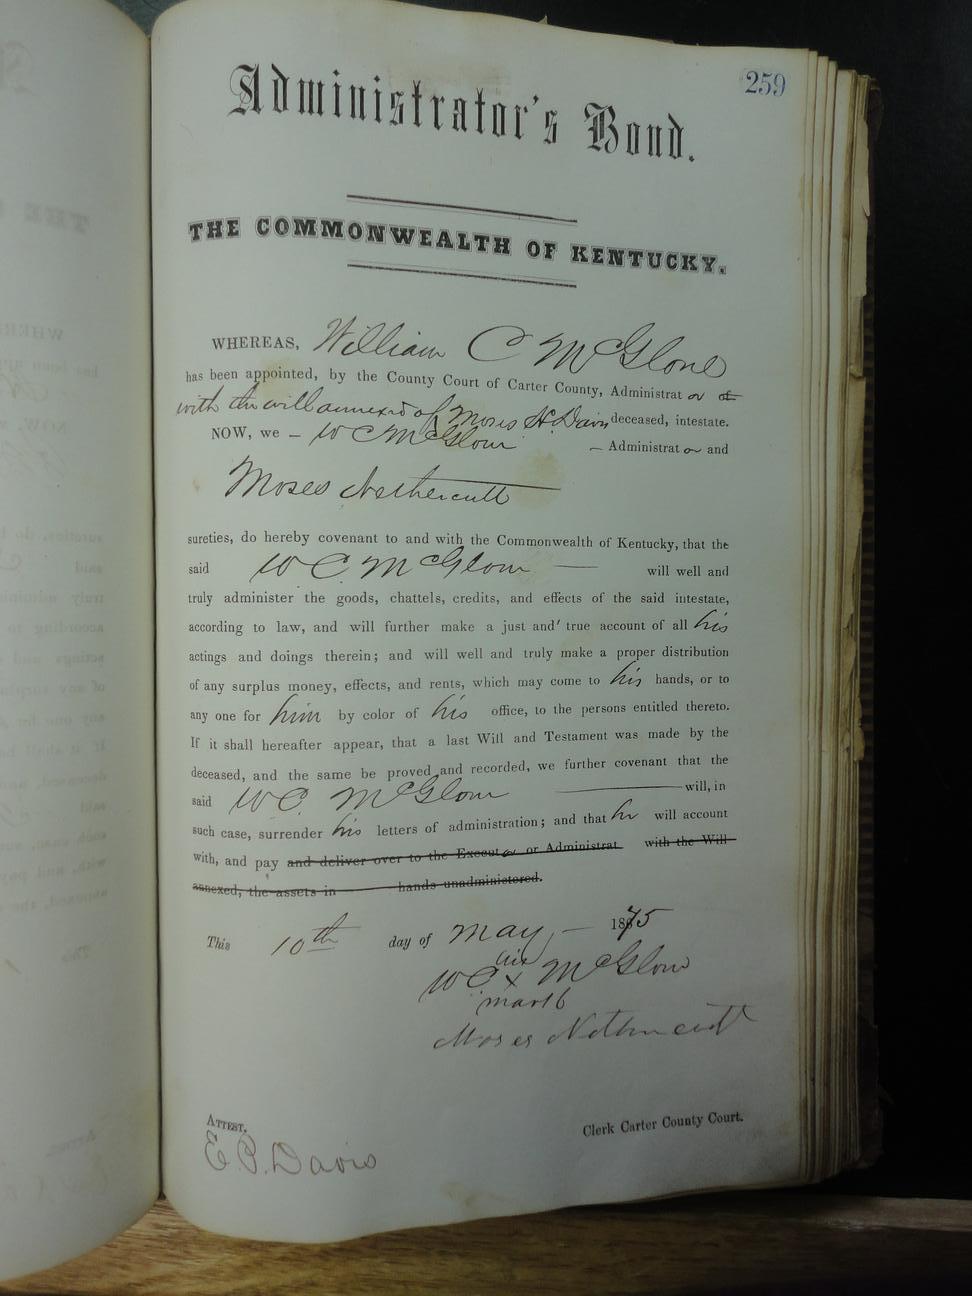 259
Administrator's Bond.
THE COMMONWEALTH OF KENTUCKY.
WHEREAS, William C McGlone
has been appointed, by the County Court of Carter County, Administrat or of
with the will annexed of Moses H Davis deceased, intestate.
NOW, we – W C McGlone – Administrat or and
Moses Nethercutt
sureties, do hereby covenant to and with the Commonwealth of Kentucky, that the
said W C McGlone — will well and
truly administer the goods, chattels, credits, and effects of the said intestate,
according to law, and will further make a just and true account of all his
actings and doings therein; and will well and truly make a proper distribution
of any surplus money, effects, and rents, which may come to his hands, or to
any one for him by color of his office, to the persons entitled thereto.
If it shall hereafter appear, that a last Will and Testament was made by the
deceased, and the same be proved and recorded, we further covenant that the
said W C McGlone — will, in
such case, surrender his letters of administration; and that he will account
with, and pay and deliver over to the Execut or or Administrat with the Will
annexed, the assets in hands unadministered.
This 10th day of May, – 1875
his
W C x McGlone
mark
Moses Nethercutt
ATTEST,
Clerk Carter County Court.
E. P. Davis